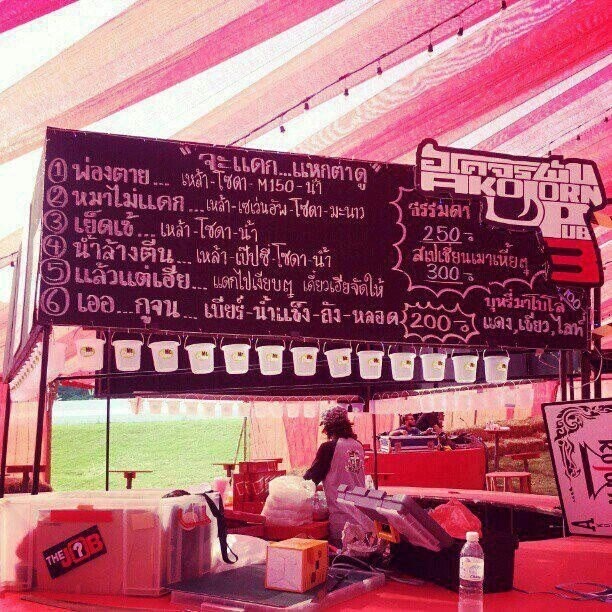 "จะแดก...แหกตาดู"
① พ่องตาย... เหล้า-โซดา-M150-น้ำ
② หมาไม่แดก... เหล้า-เซเว่นอัพ-โซดา-มะนาว
③ เย็ดเข้... เหล้า-โซดา-น้ำ
④ น้ำล้างตีน... เหล้า-เป๊ปซี่-โซดา-น้ำ
⑤ แล้วแต่เฮีย... แดกไปเงียบๆ เดี๋ยวเฮียจัดให้
⑥ เออ...กูจน... เบียร์-น้ำแข็ง-ถัง-หลอด 200-
ธรรมดา
250-
สเปเชี่ยนเมาเหี้ยๆ
300-
บุหรี่มาโบโล
แดง, เขียว, ไลท์
AKOJORN
PUB
3
THE JOB
A